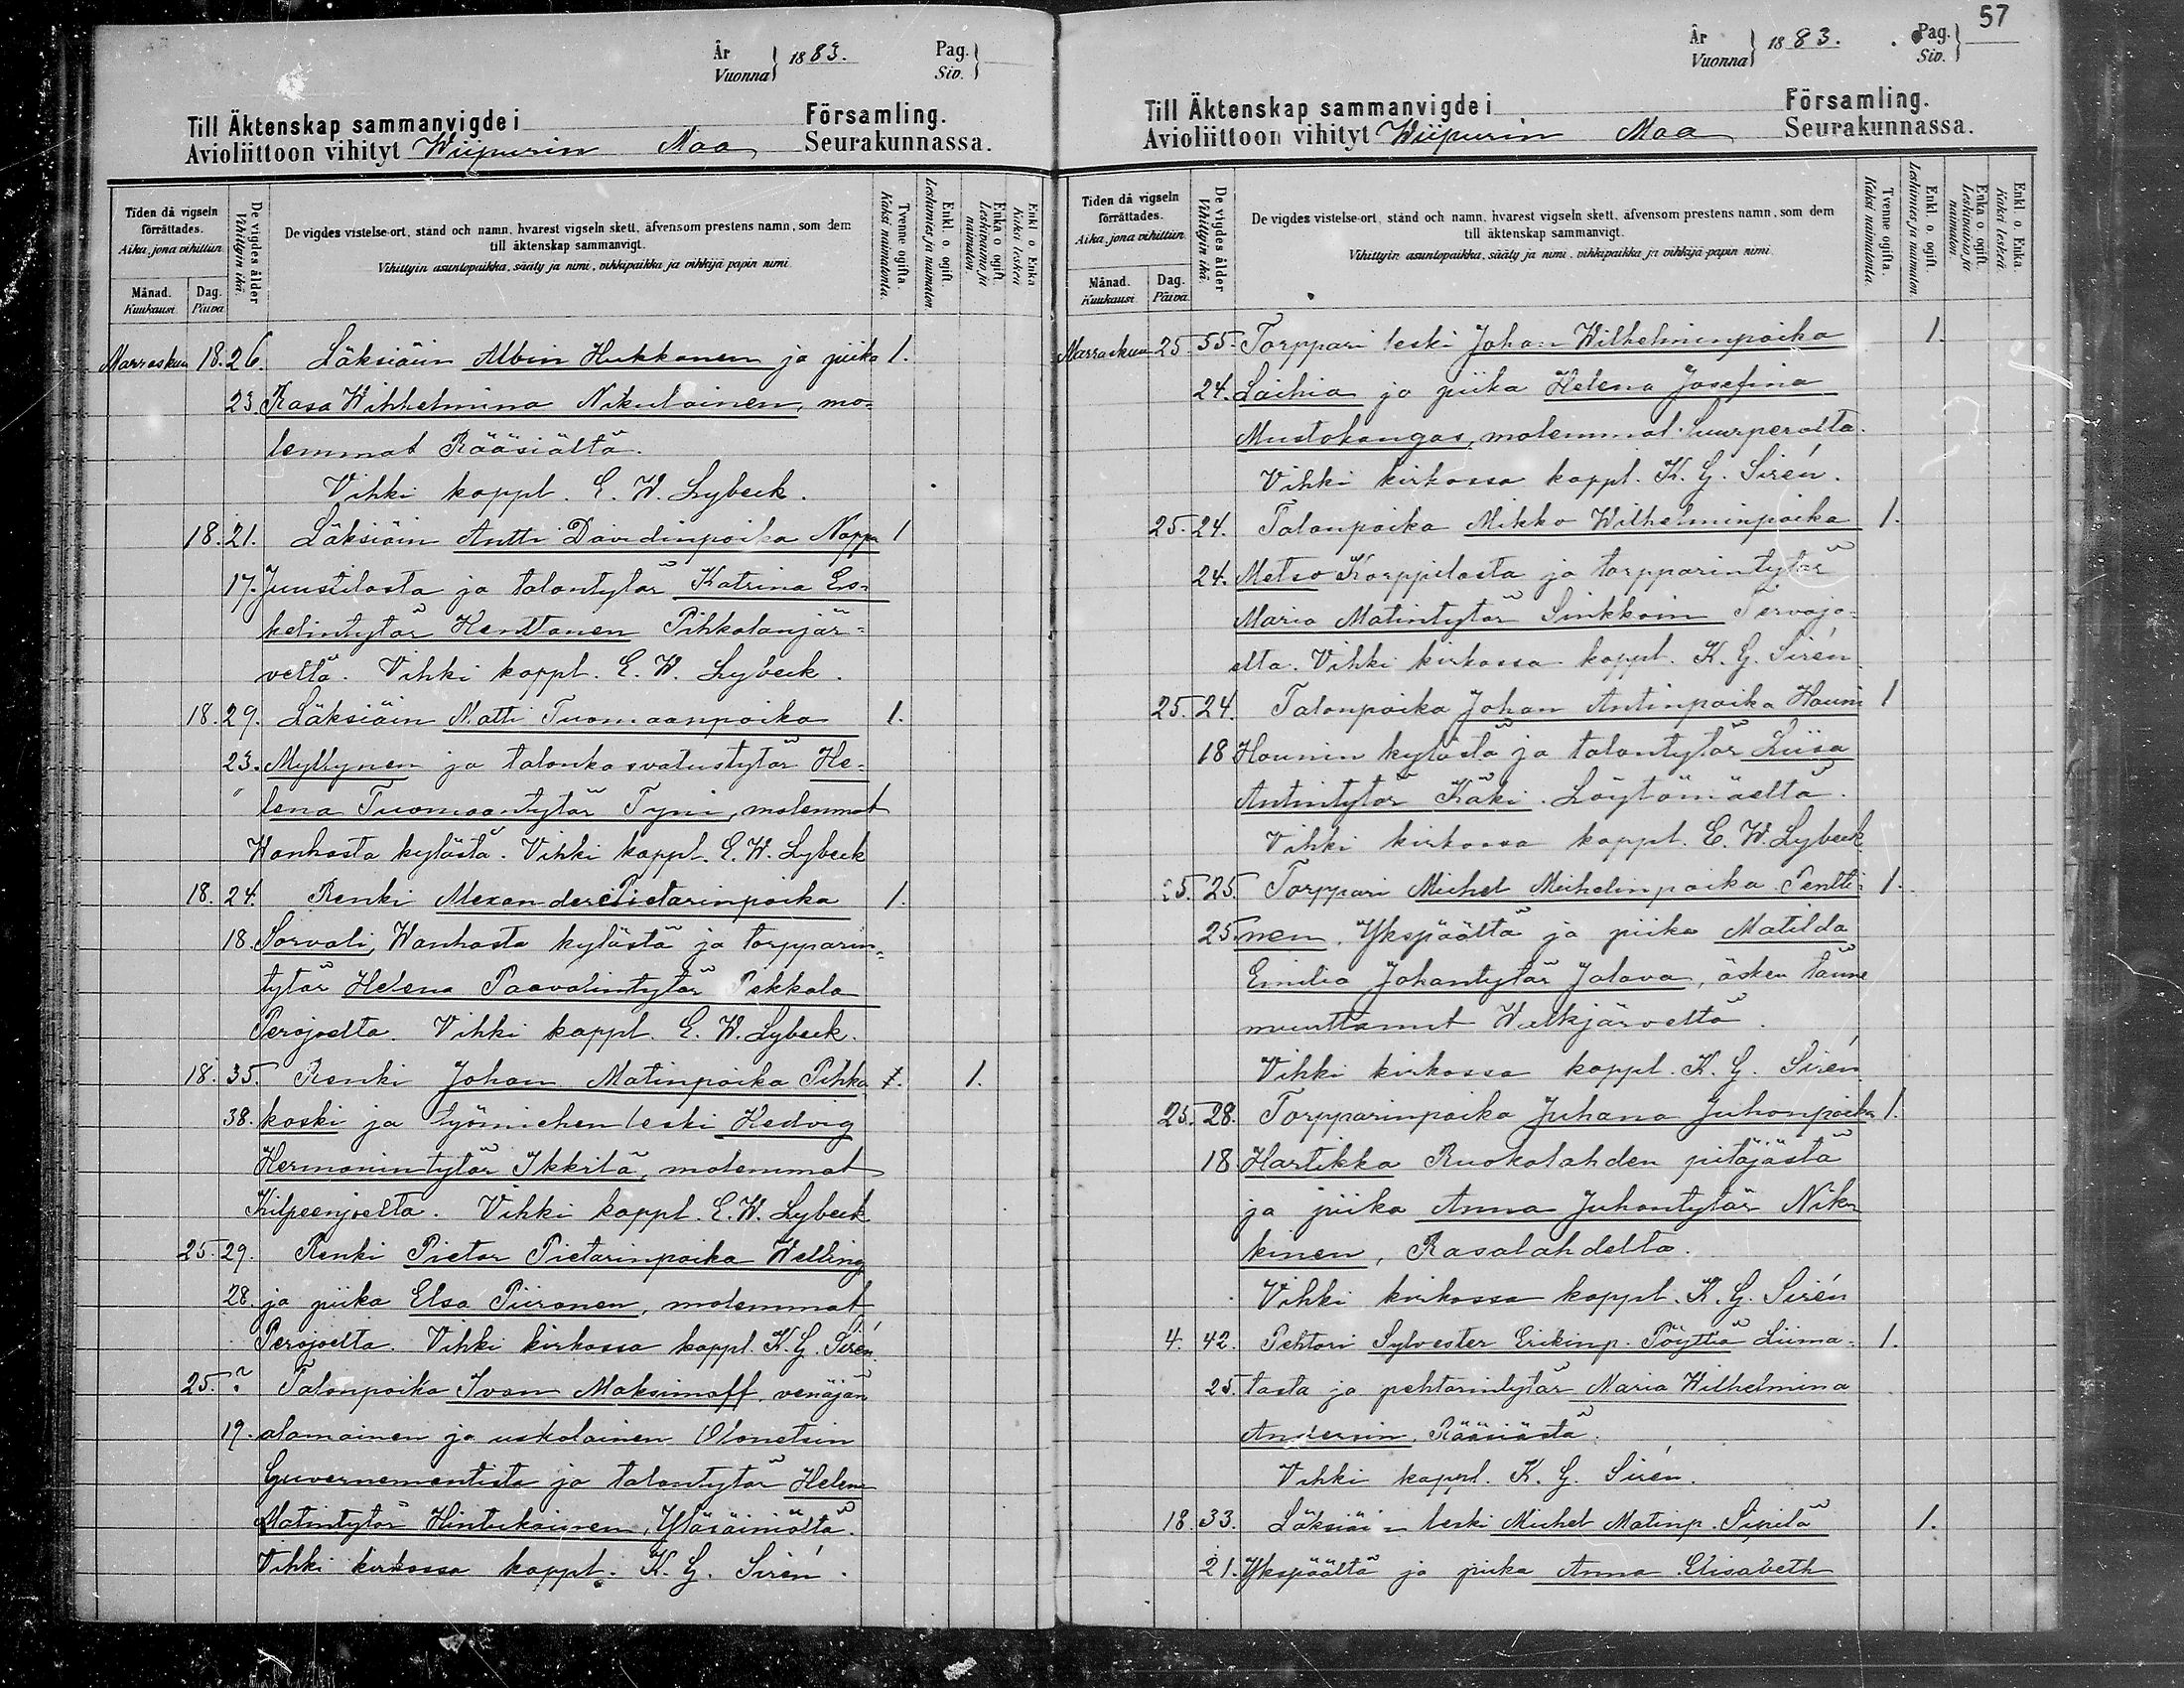 År
Vuonna } 1883.
Pag.
Siv. }
Till Äktenskap sammanvigde i Församling.
Avioliittoon vihityt Wiipurin Maa Seurakunnassa.
Tiden då vigseln förrättades.
Aika, jona vihittiin
Månad.
Kuukausi
Dag.
Päivä
De vigdes ålder
Vihittyin ikä.
De vigdes vistelse-ort, stånd och namn, hvarest vigseln skett, äfvensom prestens namn, som dem
till äktenskap sammanvigt.
Vihittyin asuntopaikka, sääty ja nimi, vihkipaikka ja vihkijä papin nimi
Tvenne ogifta.
Kaksi naimatonta.
Enkl. o. ogift.
Leskimies ja naimaton.
Enka o. ogift.
Leskivaimo ja naimaton
Enkl. o. Enka
Kaksi leskeä
Marraskuu 18. 26. Läksiäin Albin Hukkanen ja piika 1.
23. Rasa Wihhelmina Nikulainen, mo-
lemmat Rääsiältä.
Vihki kappl. E. W. Lybeck.
18. 21. Läksiäin Antti Davidinpoika Nappa 1
17. Juustilasta ja talontytär Katrina Es-
kelintytär Henttonen Pihkalanjär-
veltä. Vihki kappl. E. W. Lybeck.
18. 29. Läksiäin Matti Tuomaanpoika 1.
23. Myllynen ja talonkasvatustytär He-
lena Tuomaantytär Tyni, molemmat
Wanhasta kylästä. Vihki kappl. E. W. Lybeck
18. 24. Renki Alexander Pietarinpoika 1.
18. Sorvali, Wanhasta kylästä ja torpparin-
tytär Helena Paavalintytär Pekkala
Perojoelta. Vihki kappl. E. W. Lybeck.
18. 35. Renki Johan Matinpoika Pihka 1. 1.
38. koski ja työmiehen leski Hedvig
Hermanintytär Ikkilä, molemmat
Kilpeenjoelta. Vihki kappl. E. W. Lybeck
25. 29. Renki Pietar Pietarinpoika Welling
28. ja piika Elsa Piironen, molemmat
Perojoelta. Vihki kirkossa kappl. K. G. Sirén.
25. ? Talonpoika Ivan Maksimoff, venäjän
19. alamainen ja uskolainen Olonetsin
Guvernementista ja talontytär Helena
Matintytär Hintukainen, Yläsäiniöltä.
Vihki kirkossa kappl. K. G. Sirén.
57
År
Vuonna } 1883.
Pag.
Siv. }
Till Äktenskap sammanvigde i Församling.
Avioliittoon vihityt Wiipurin Maa Seurakunnassa.
Tiden då vigseln förrättades.
Aika, jona vihittiin
Månad.
Kuukausi
Dag.
Päivä
De vigdes ålder
Vihittyin ikä.
De vigdes vistelse-ort, stånd och namn, hvarest vigseln skett, äfvensom prestens namn, som dem
till äktenskap sammanvigt.
Vihittyin asuntopaikka, sääty ja nimi, vihkipaikka ja vihkijä papin nimi
Tvenne ogifta.
Kaksi naimatonta.
Enkl. o. ogift.
Leskimies ja naimaton.
Enka o. ogift.
Leskivaimo ja naimaton.
Enkl. o. Enka.
Kaksi leskeä.
Marraskuu 25. 55. Torppari leski Johan Wilhelminpoika 1.
24. Laihia ja piika Helena Josefina
Mustokangas, molemmat Suurperolta.
Vihki kirkossa kappl. K. G. Sirén.
25. 24. Talonpoika Mikko Wilhelminpoika 1.
24. Metso Korppilasta ja torpparintytär
Maria Matintytär Sinkkoin Tervajo-
elta. Vihki kirkossa kappl. K. G. Sirén
25. 24. Talonpoika Johan Antinpoika Houni 1
18 Hounin kylästä ja talontytär Liisa
Antintytär Käki Löytömäeltä.
Vihki kirkossa kappl. E. W. Lybeck.
25. 25. Torppari Michel Michelinpoika Pentti- 1.
25. nen, Ykspäältä ja piika Matilda
Emilia Johantytär Jalava, äsken tänne
muuttanut Walkjärveltä.
Vihki kirkossa kappl. K. G. Sirén.
25. 28. Torpparinpoika Juhana Juhonpoika 1.
18. Hartikka Ruokolahden pitäjästä
ja piika Anna Juhontytär Nik-
kinen, Rasalahdelta.
Vihki kirkossa kappl. K. G. Sirén
4. 42. Pehtori Sylvester Erikinp. Pöyttiä Liima- 1.
25. tasta ja pehtorintytär Maria Wilhelmina
Andersin, Rääsiästä.
Vihki kappl. K. G. Sirén.
18. 33. Läksiäin leski Michel Matinp. Sipilä 1.
21. Ykspäältä ja piika Anna Elisabeth